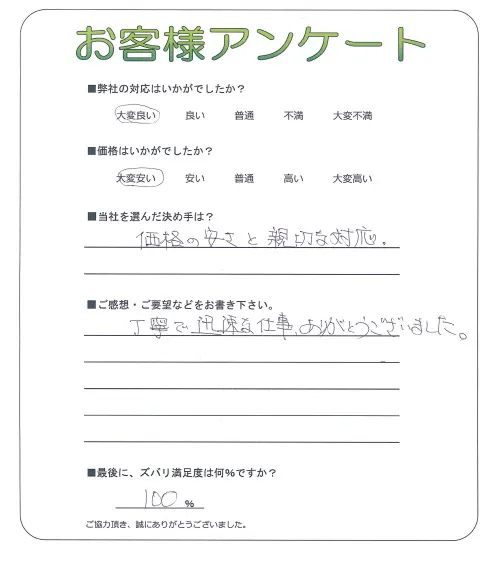 お客様アンケート
■弊社の対応はいかがでしたか？
大変良い 良い 普通 不満 大変不満
■価格はいかがでしたか？
大変安い 安い 普通 高い 大変高い
■当社を選んだ決め手は？
価格の安さと親切な対応。
■ご感想・ご要望などをお書き下さい。
丁寧で迅速な仕事、ありがとうございました。
■最後に、ズバリ満足度は何%ですか？
100 %
ご協力頂き、誠にありがとうございました。